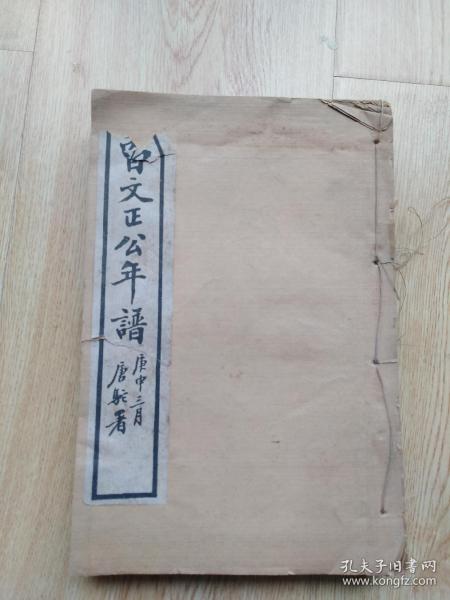 曾文正公年譜
庚申三月
唐駝署
孔夫子旧书网
www.kongfz.com